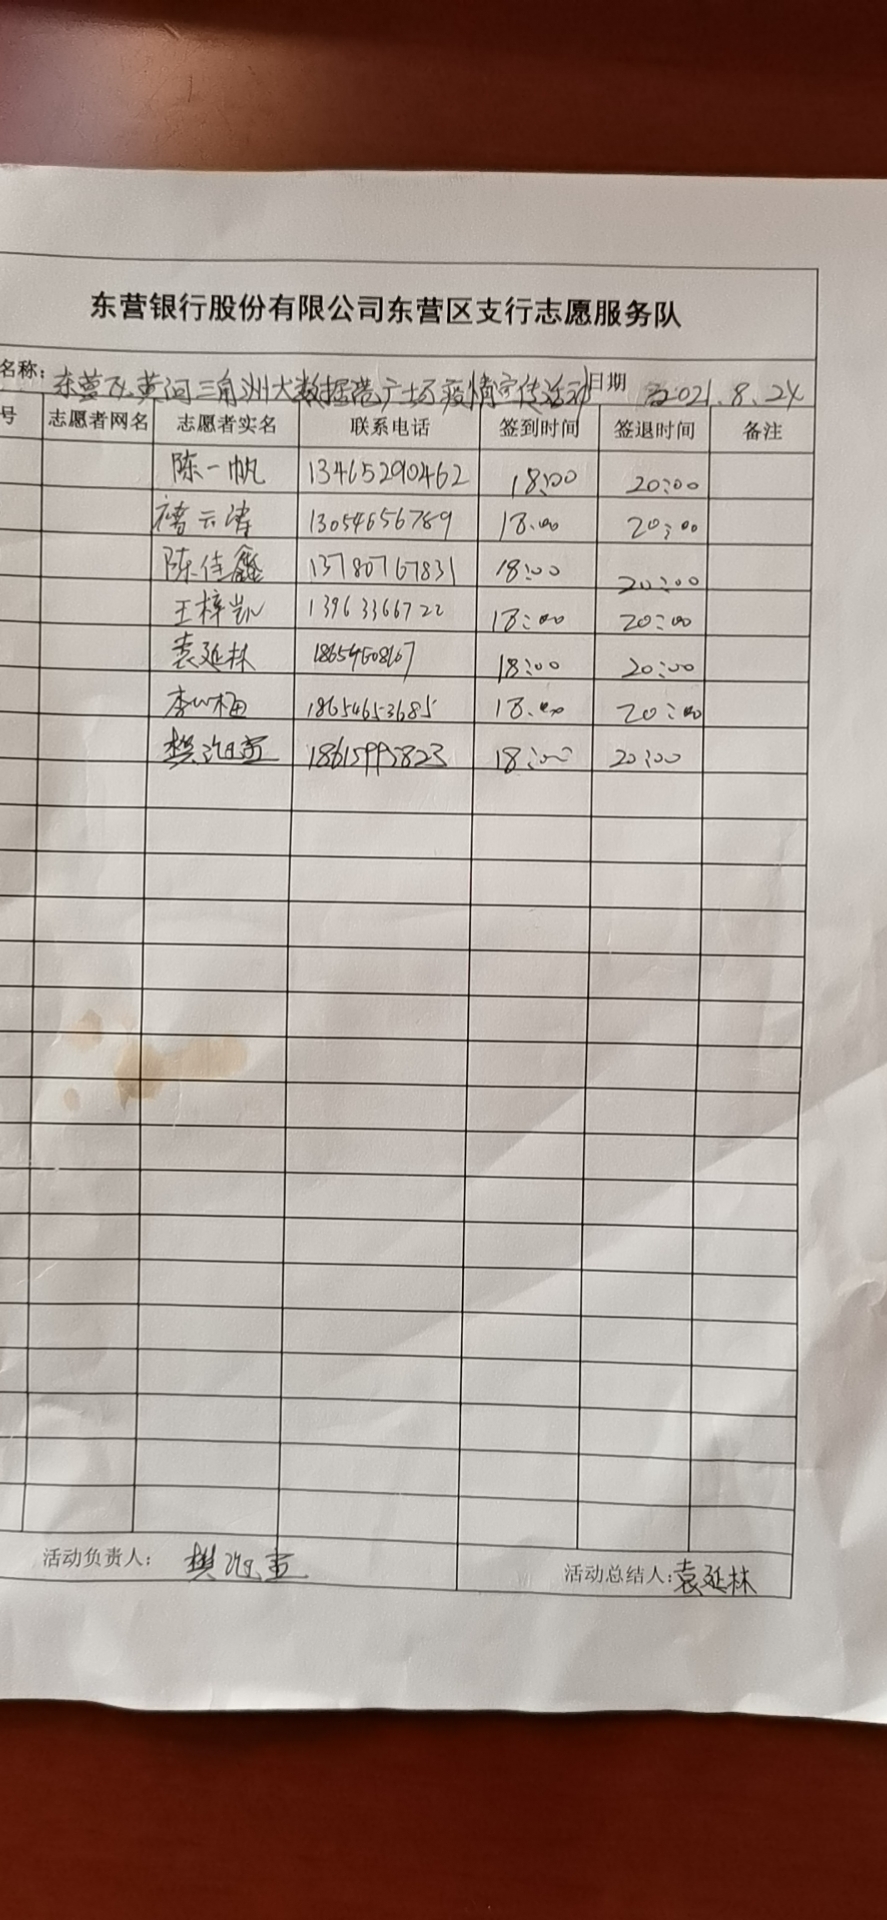 东营银行股份有限公司东营区支行志愿服务队
名称: 东营区黄河三角洲大数据港广场疫情宣传活动 日期 2021.8.24
号 志愿者网名 志愿者实名 联系电话 签到时间 签退时间 备注
陈一帆 13465290462 18:00 20:00
云涛 13054656789 18:00 20:00
陈佳鑫 13780767831 18:00 20:00
王梓凯 13963366722 18:00 20:00
袁延林 18:00 20:00
李 梅 18654653685 18:00 20:00
樊 18615995823 18:00 20:00
活动负责人: 樊 活动总结人:袁延林